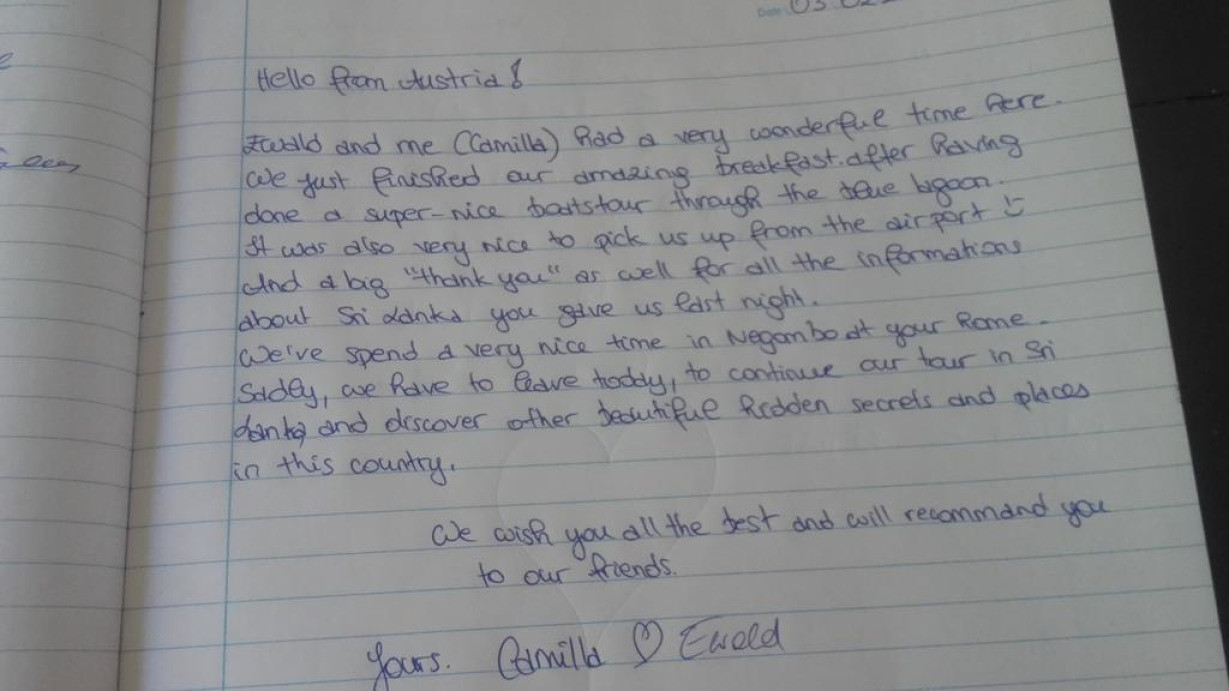 Date: 03.02
Hello from Austria!
Ewald and me (Camilla) had a very wonderful time here.
We just finished our amazing breakfast. after having
done a super-nice boatstour through the blue lagoon.
It was also very nice to pick us up from the airport :)
And a big "thank you" as well for all the informations
about Sri Lanka you gave us last night.
We've spend a very nice time in Negambo at your home.
Sadly, we have to leave today, to continue our tour in Sri
Lanka and discover other beautiful hidden secrets and places
in this country.
We wish you all the best and will recommand you
to our friends.
Yours. Camilla ♡ Ewald